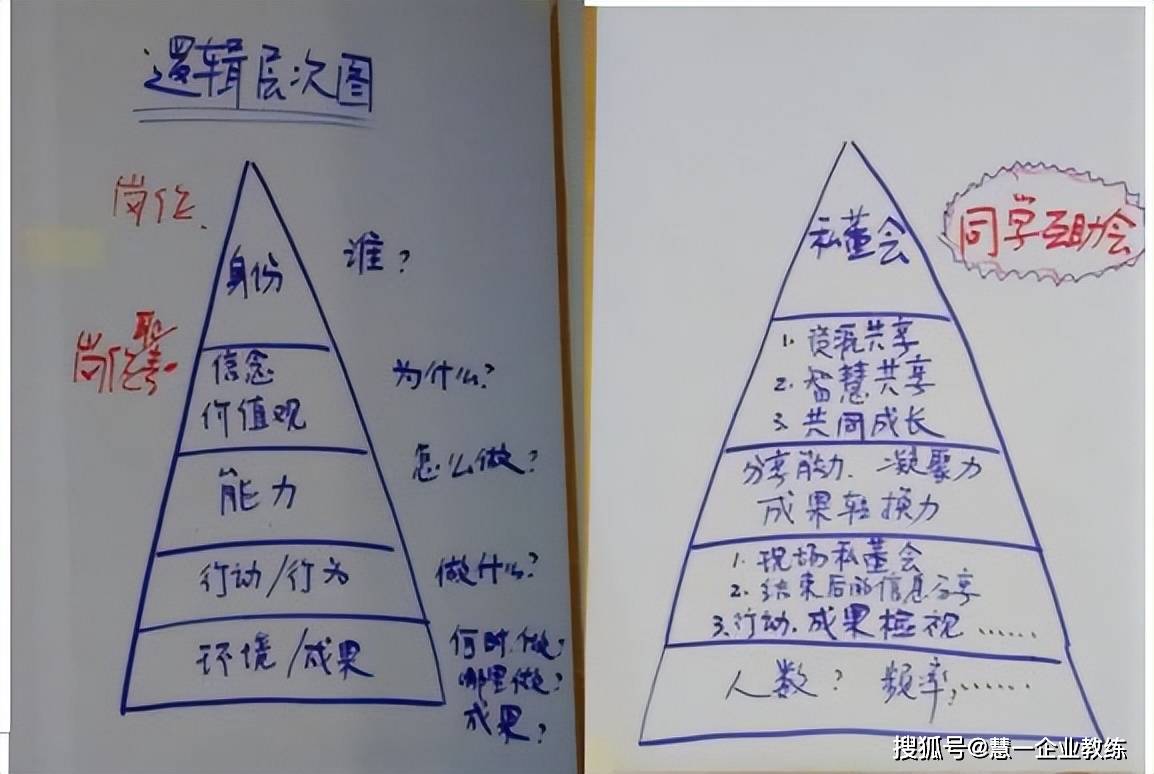 逻辑层次图
岗位.
身份
谁?
岗位职责
信念
价值观
为什么?
能力
怎么做?
行动/行为
做什么?
环境/成果
何时做?
哪里做?
成果?
私董会
同学互助会
1. 资源共享
2. 智慧共享
3. 共同成长
分享能力. 凝聚力
成果转换力
1. 现场私董会
2. 结束后的信息分享
3. 行动.成果检视……
人数? 频率,……
搜狐号@慧一企业教练